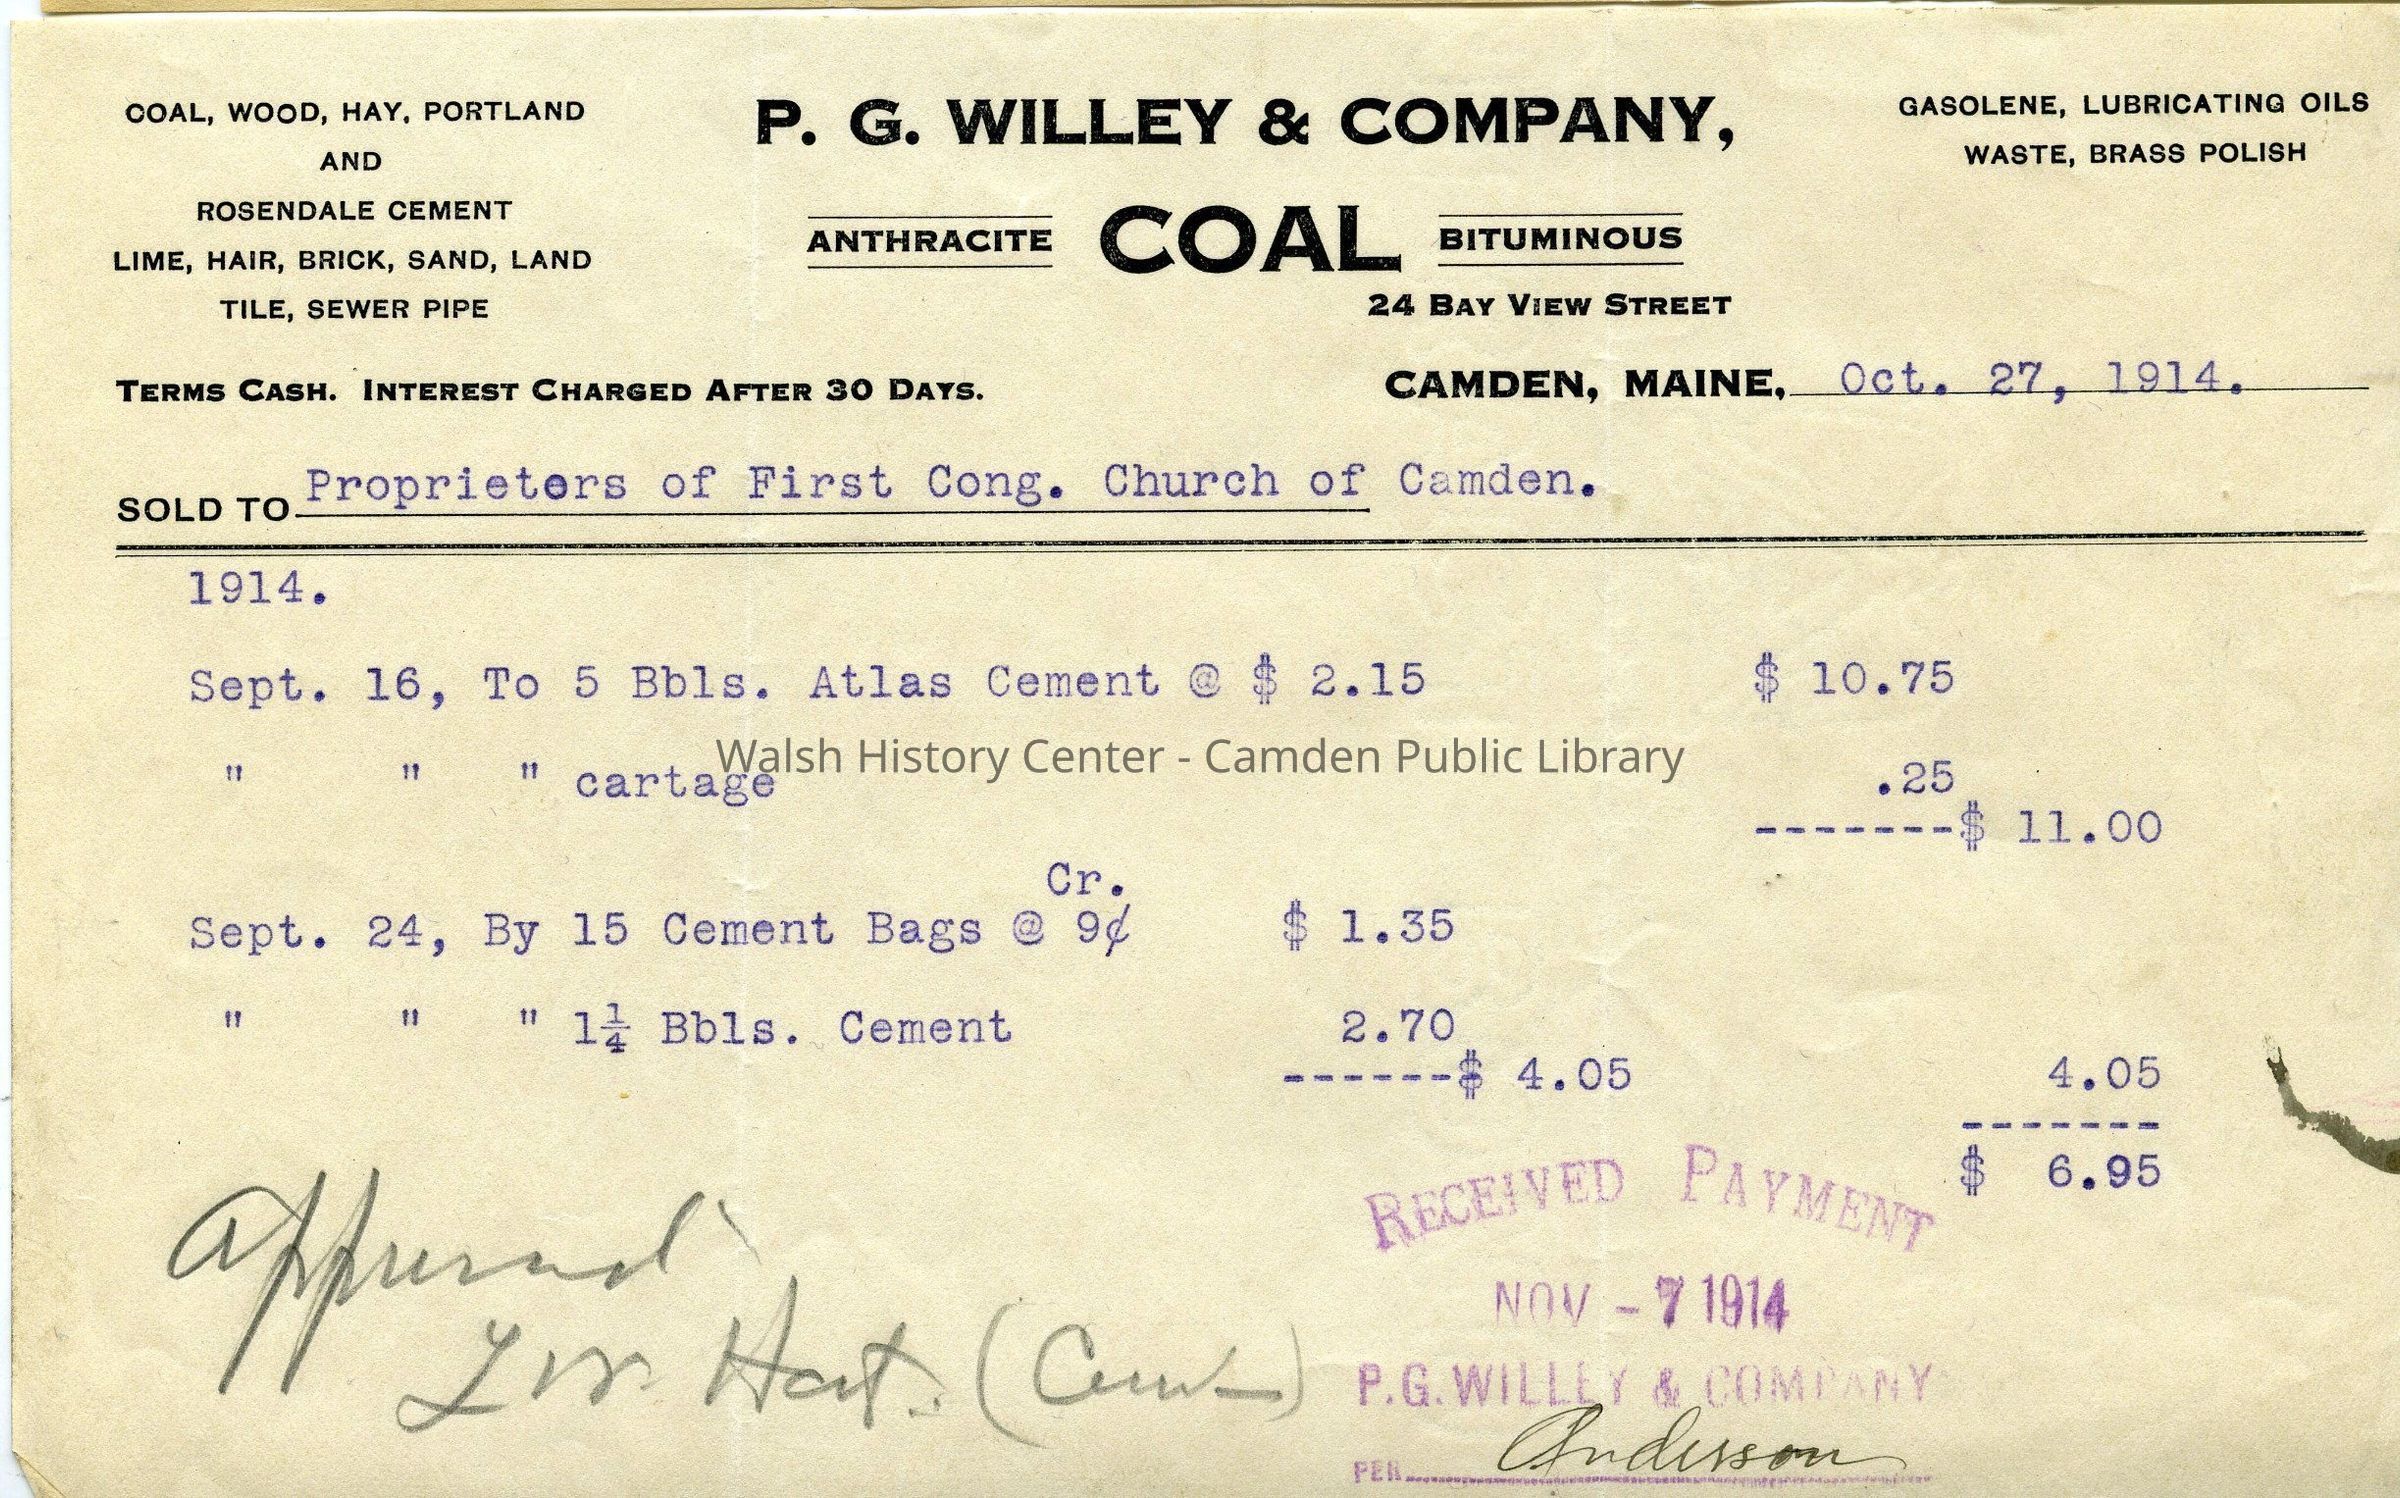 COAL, WOOD, HAY, PORTLAND
AND
ROSENDALE CEMENT
LIME, HAIR, BRICK, SAND, LAND
TILE, SEWER PIPE
P. G. WILLEY & COMPANY,
ANTHRACITE COAL BITUMINOUS
24 BAY VIEW STREET
GASOLENE, LUBRICATING OILS
WASTE, BRASS POLISH
TERMS CASH. INTEREST CHARGED AFTER 30 DAYS.
CAMDEN, MAINE, Oct. 27, 1914.
SOLD TO Proprietors of First Cong. Church of Camden.
1914.
Sept. 16, To 5 Bbls. Atlas Cement @ $ 2.15 $ 10.75
Walsh History Center - Camden Public Library
" " " cartage .25
-------$ 11.00
Cr.
Sept. 24, By 15 Cement Bags @ 9¢ $ 1.35
" " " 1¼ Bbls. Cement 2.70
------$ 4.05 4.05
-------
$ 6.95
Approved
Hart.
RECEIVED PAYMENT
NOV - 7 1914
P.G. WILLEY & COMPANY
PER Anderson